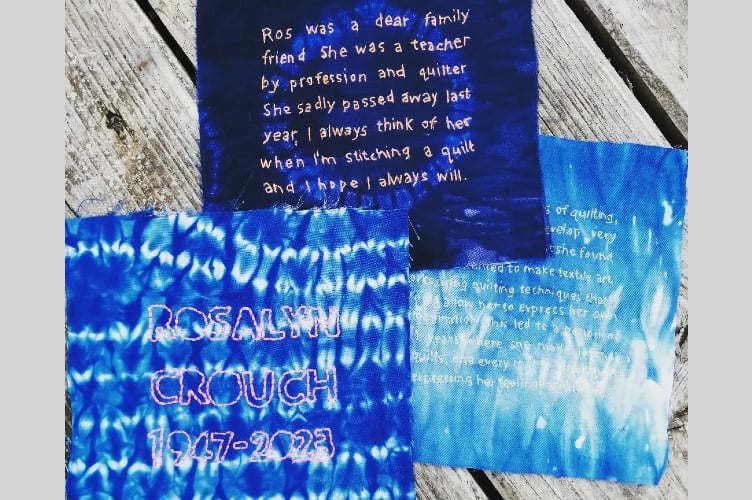 Ros was a dear family
friend She was a teacher
by profession and quilter
She sadly passed away last
year, I always think of her
when I'm stitching a quilt
and I hope I always will.
ROSALYN
CROUCH
1947-2023
of quilting,
very
she found
to make textile art
using quilting techniques that
allow her to express her own
This led to a
years where she made
quilts, and every
expressing her feelings